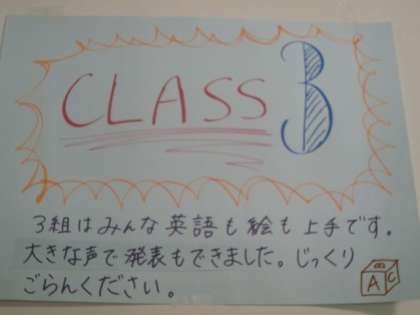 CLASS 3
3組はみんな英語も絵も上手です。
大きな声で発表もできました。じっくり
ごらんください。
A C